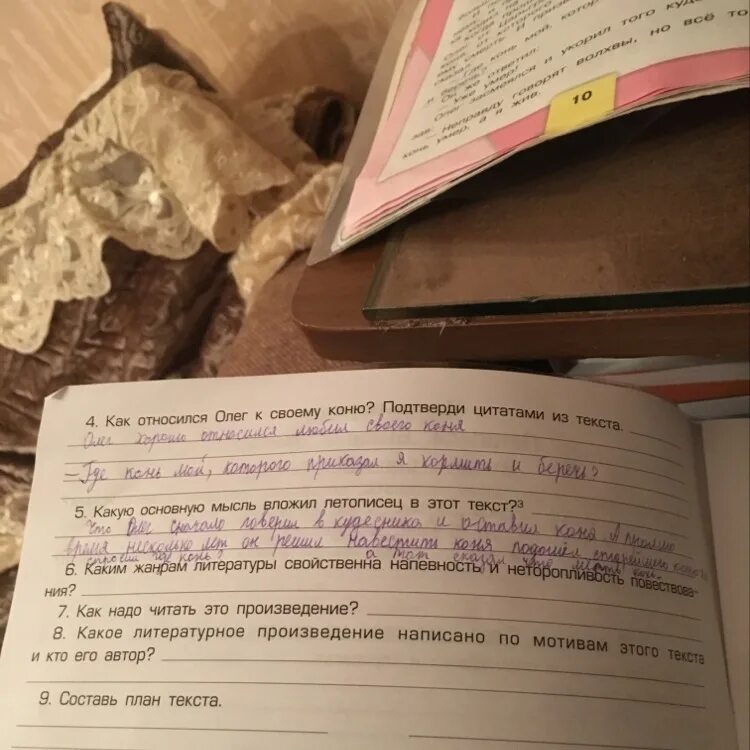 кой, котор
сказал:
конь мой, кото
— Где
беречь?
Он же ответил:
— Уже умер!
Олег засмеялся и укорил того куде
зав:
— Неправду говорят волхвы, но всё то
конь умер, а я жив.
10
4. Как относился Олег к своему коню? Подтверди цитатами из текста.
Олег хорошо относился любил своего коня
– Где конь мой, которого приказал я кормить и беречь?
5. Какую основную мысль вложил летописец в этот текст?³
Что Олег сначало поверил в кудесника и оставил коня А прошло
время несколько лет он решил Навестить коня подошёл старейшего
спросил где конь? а тот сказал что
6. Каким жанрам литературы свойственна напевность и неторопливость повествова-
ния?
7. Как надо читать это произведение?
8. Какое литературное произведение написано по мотивам этого текста
и кто его автор?
9. Составь план текста.